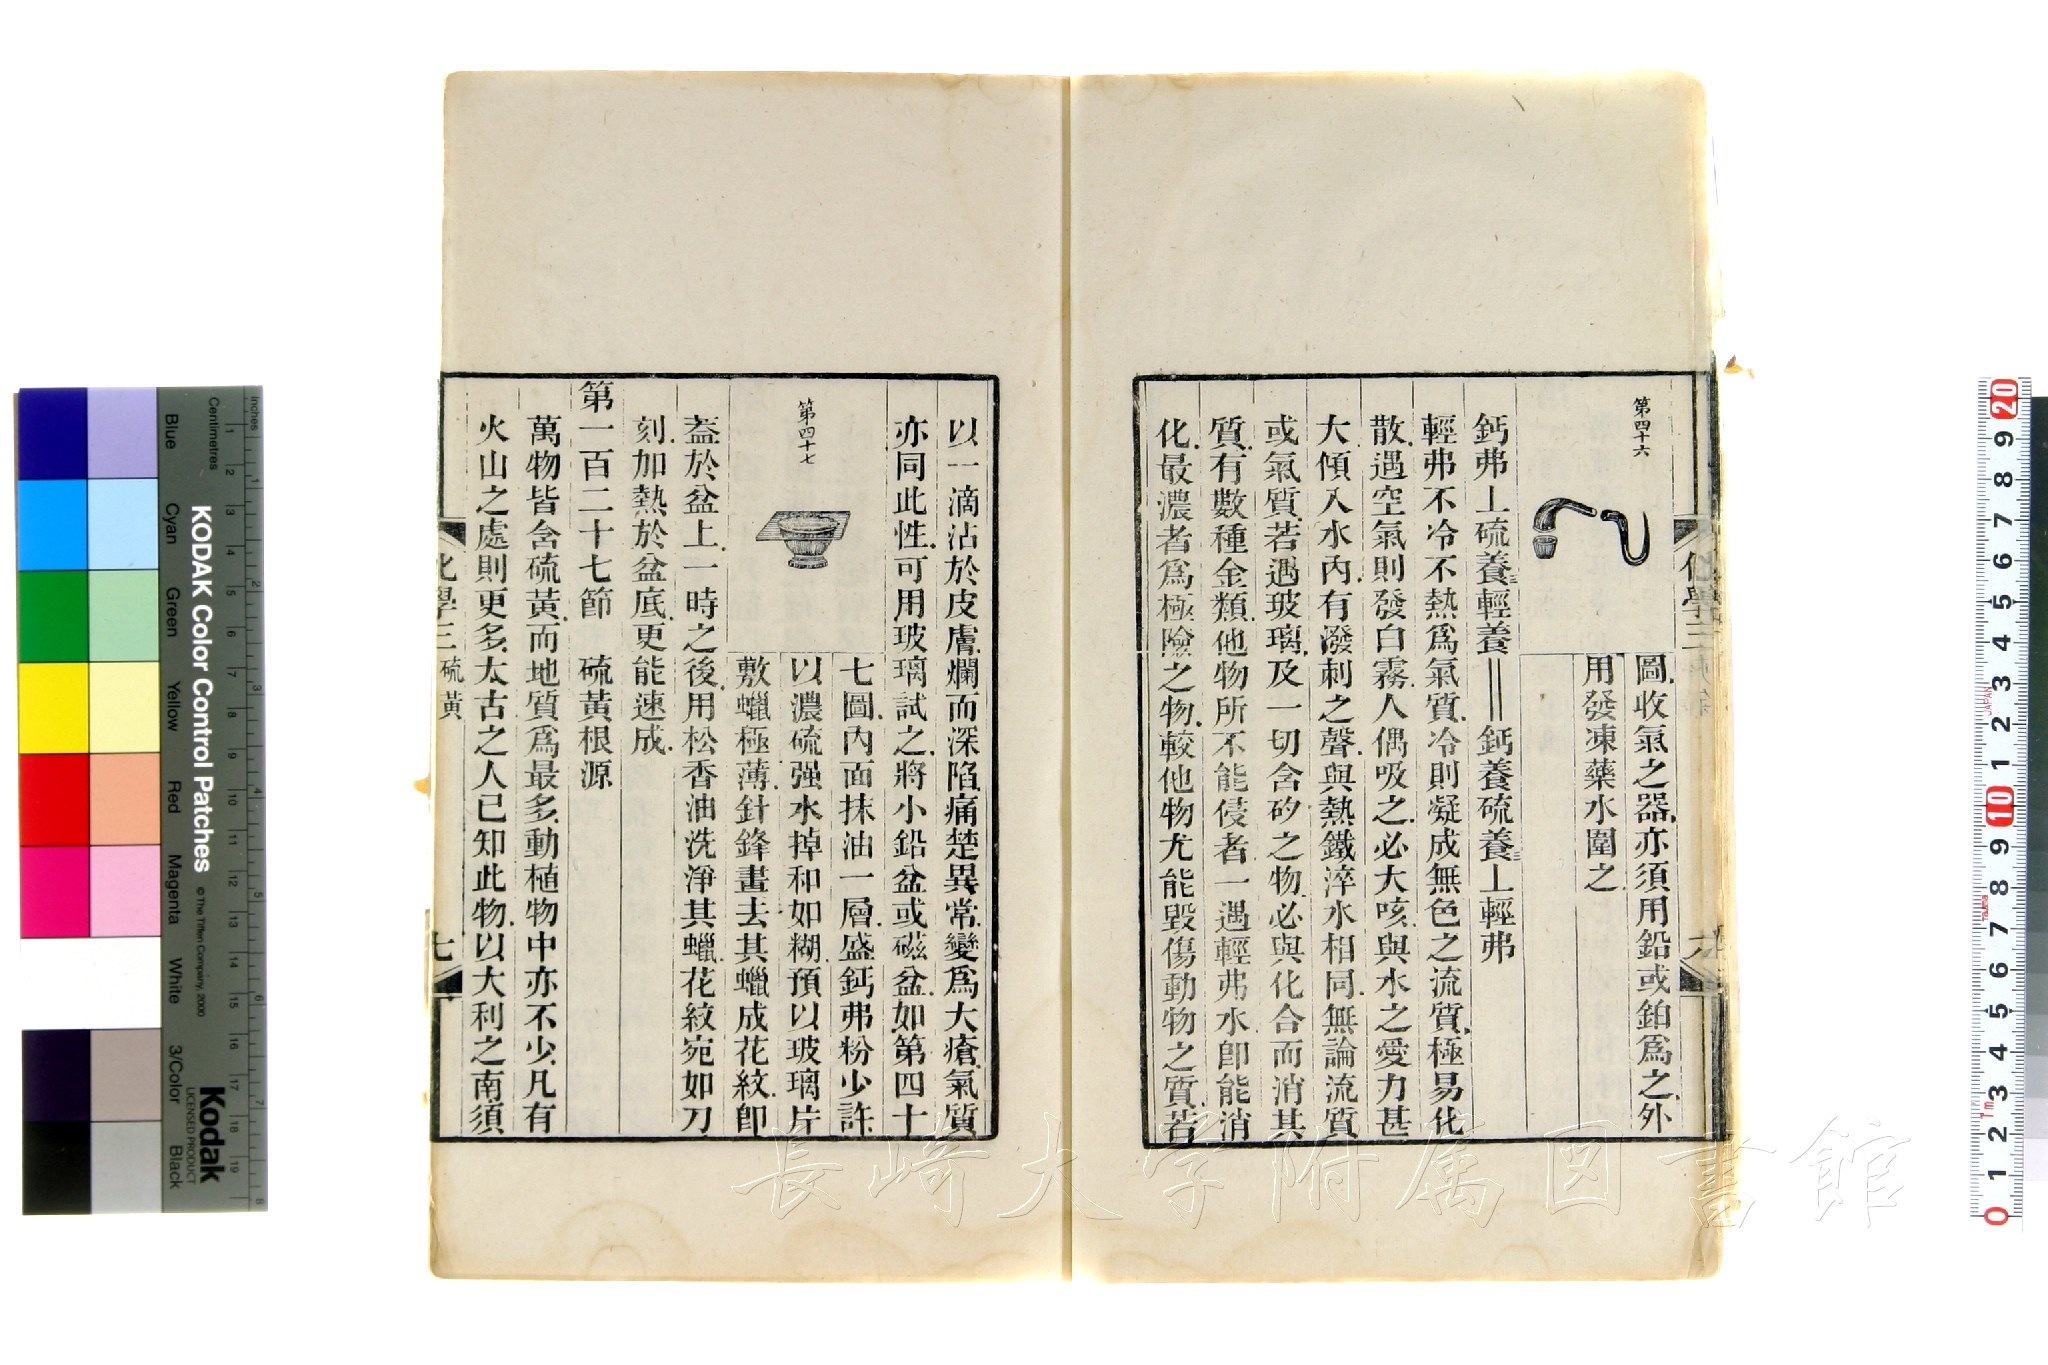 第四十六
圖收氣之器亦須用鉛或鉑爲之外
用發凍藥水圍之
鈣弗上硫養輕養══鈣養硫養上輕弗
輕弗不冷不熱爲氣質冷則凝成無色之流質極易化
散遇空氣則發白霧人偶吸之必大咳與水之愛力甚
大傾入水內有潑刺之聲與熱鐵淬水相同無論流質
或氣質若遇玻璃及一切含矽之物必與化合而消其
質有數種金類他物所不能侵者一遇輕弗水卽能消
化最濃者爲極險之物較他物尤能毀傷動物之質若
化學三
六
以一滴沾於皮膚爛而深陷痛楚異常變爲大瘡氣質
亦同此性可用玻璃試之將小鉛盆或磁盆如第四十
第四十七
七圖內面抹油一層盛鈣弗粉少許
以濃硫强水掉和如糊預以玻璃片
敷蠟極薄針鋒畫去其蠟成花紋卽
葢於盆上一時之後用松香油洗淨其蠟花紋宛如刀
刻加熱於盆底更能速成
第一百二十七節 硫黃根源
萬物皆含硫黃而地質爲最多動植物中亦不少凡有
火山之處則更多太古之人已知此物以大利之南須
化學三 硫黃
七
長崎大学附属図書館
KODAK Color Control Patches
© The Tiffen Company, 2000
Kodak
LICENSED PRODUCT
inches
Centimetres
Blue
Cyan
Green
Yellow
Red
Magenta
White
3/Color
Black
1 2 3 4 5 6 7 8 9 10 11 12 13 14 15 16 17 18 19
1 2 3 4 5 6 7 8
20 9 8 7 6 5 4 3 2 1 10 9 8 7 6 5 4 3 2 1 0
JAPAN
1m